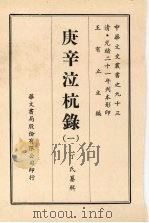 中華文史叢書之九十三
清·光緒二十一年刊本影印
王有立主編
庚辛泣杭錄
(一)
丁氏纂輯
華文書局股份有限公司印行